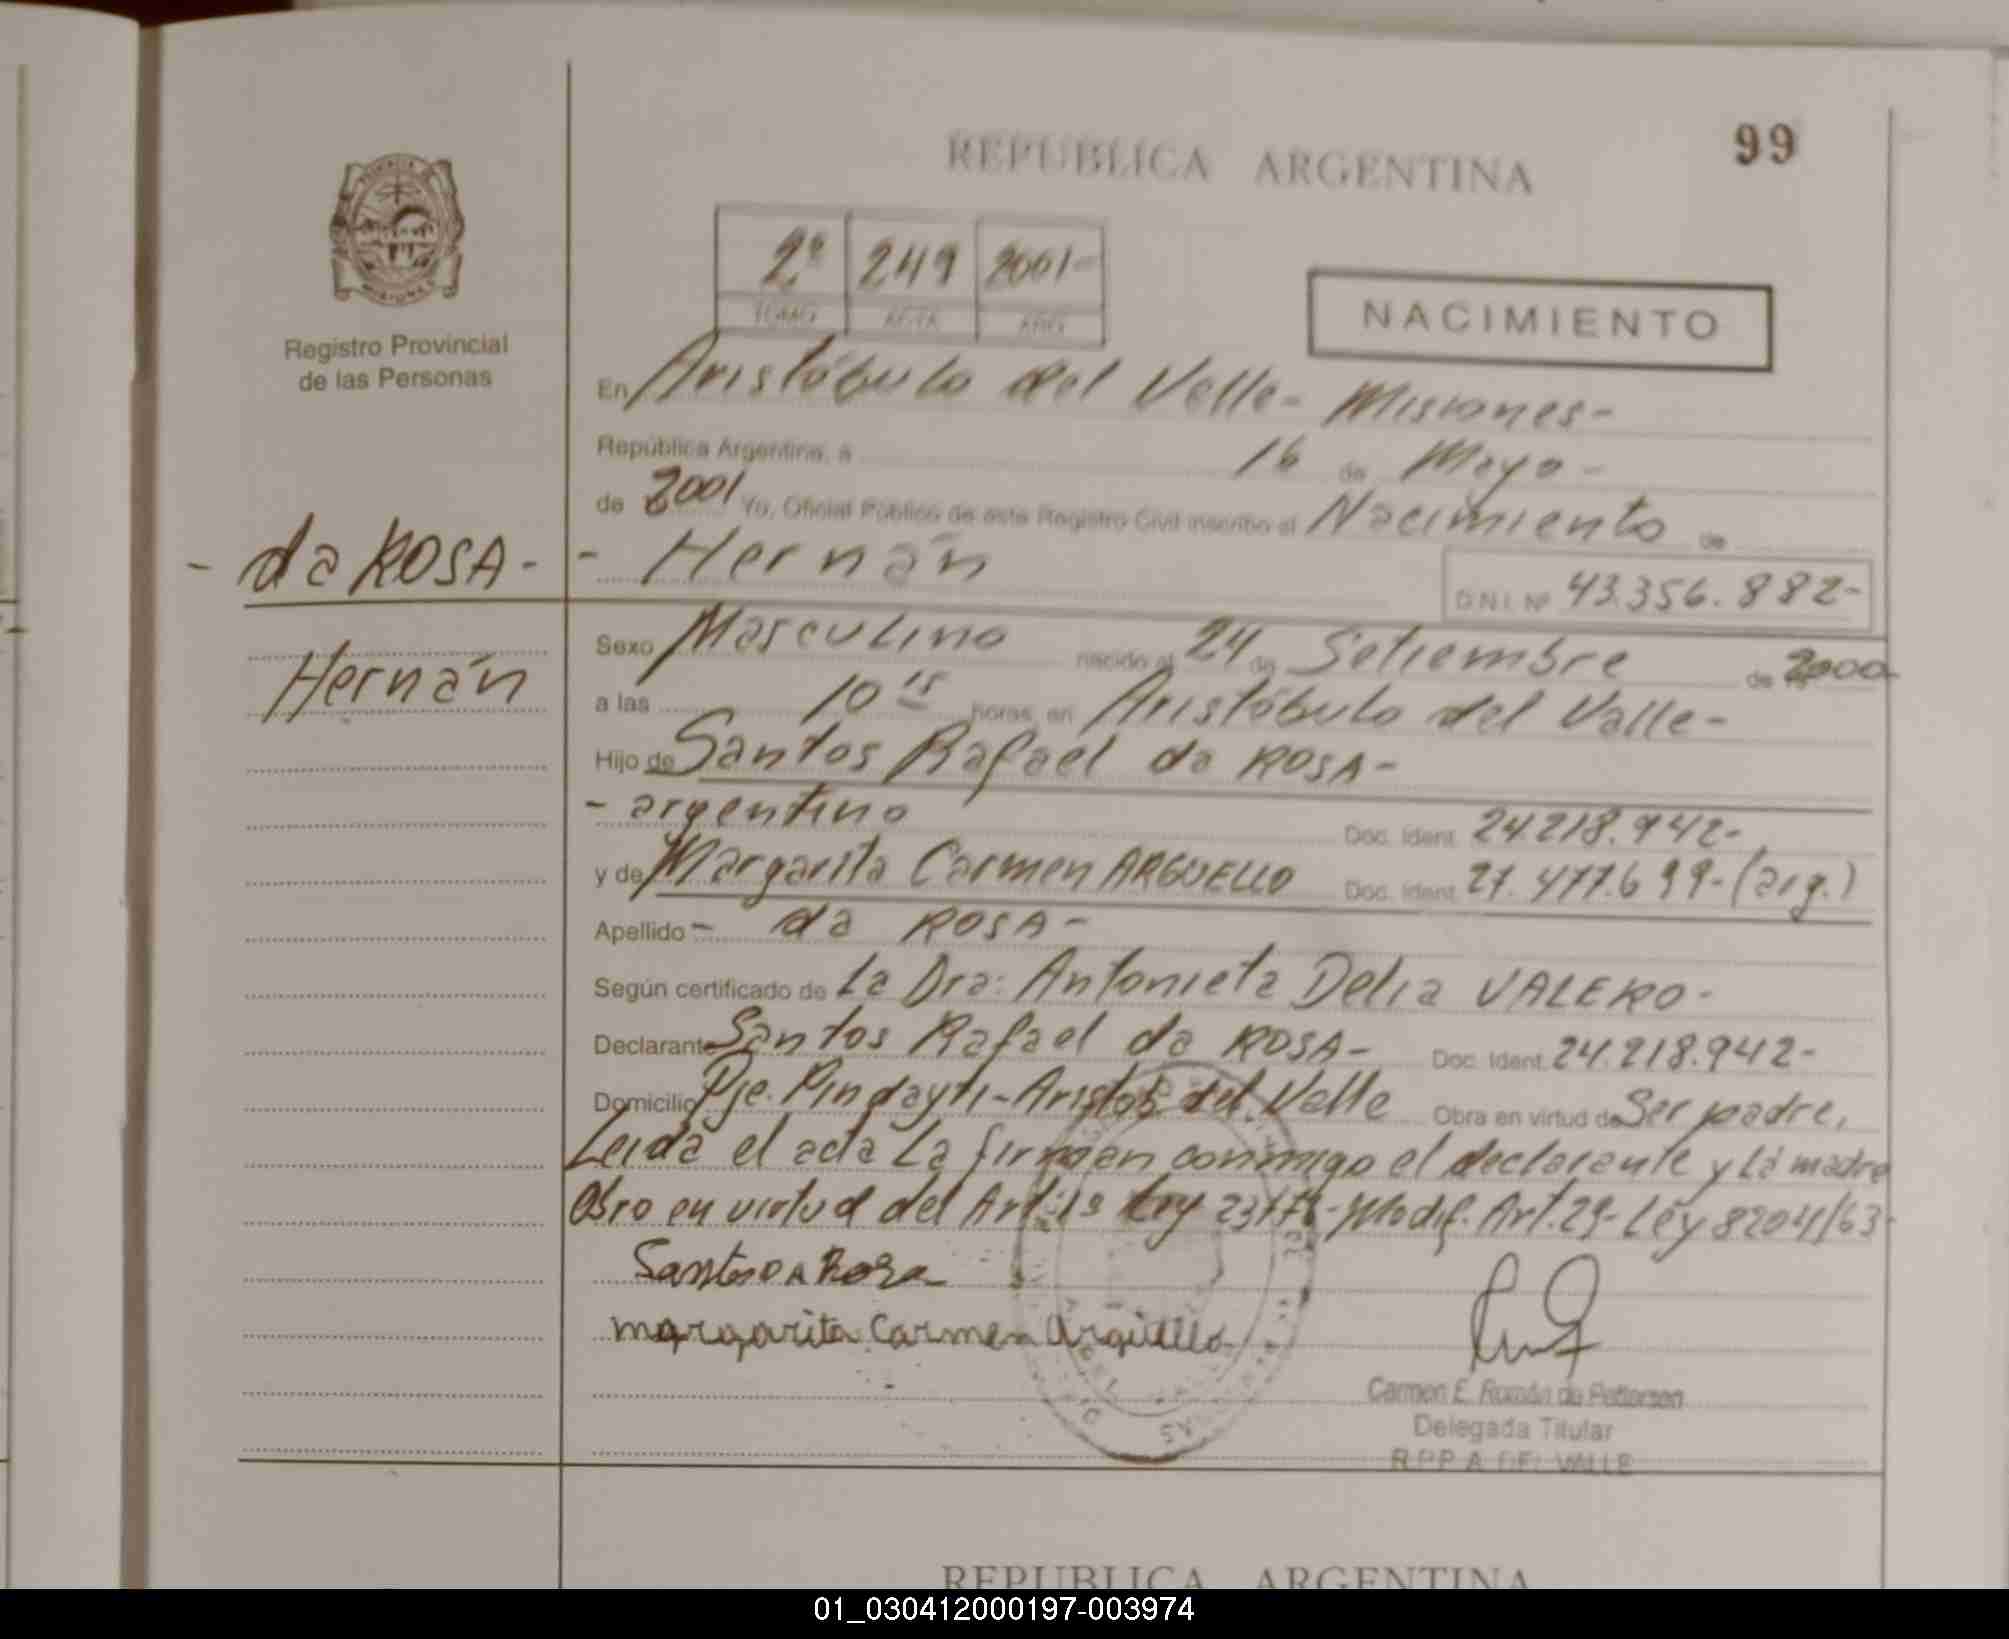 99
REPUBLICA ARGENTINA
2º 249 2001-
TOMO ACTA AÑO
NACIMIENTO
Registro Provincial
de las Personas
En Aristóbulo del Valle- Misiones-
República Argentina, a 16 de Mayo-
de 2001 Yo, Oficial Público de este Registro Civil inscribo el Nacimiento de
- da ROSA- - Hernán
D.N.I. Nº 43.356.882-
Hernán
Sexo Masculino nacido el 24 de Setiembre de 2000-
a las 10 15 horas, en Aristóbulo del Valle-
Hijo de Santos Rafael da ROSA-
- argentino Doc. Ident. 24.218.942-
y de Margarita Carmen ARGUELLO Doc. Ident. 27.477.699-(arg.)
Apellido - da ROSA-
Según certificado de La Dra: Antonieta Delia VALERO-
Declarante Santos Rafael da ROSA- Doc. Ident. 24.218.942-
Domicilio Pje. Pindayti-Aristob. del Valle Obra en virtud de Ser padre,
Leida el acta La firman conmigo el declarante y La madre
Obro en virtud del Art. Ley -Modif. Art.29-Ley 8204/63-
Santos DA Rosa
margarita Carmen Argüello
Carmen E. Román de Pettersen
Delegada Titular
R.P.P. A. DEL VALLE
REPUBLICA ARGENTINA
01_030412000197-003974